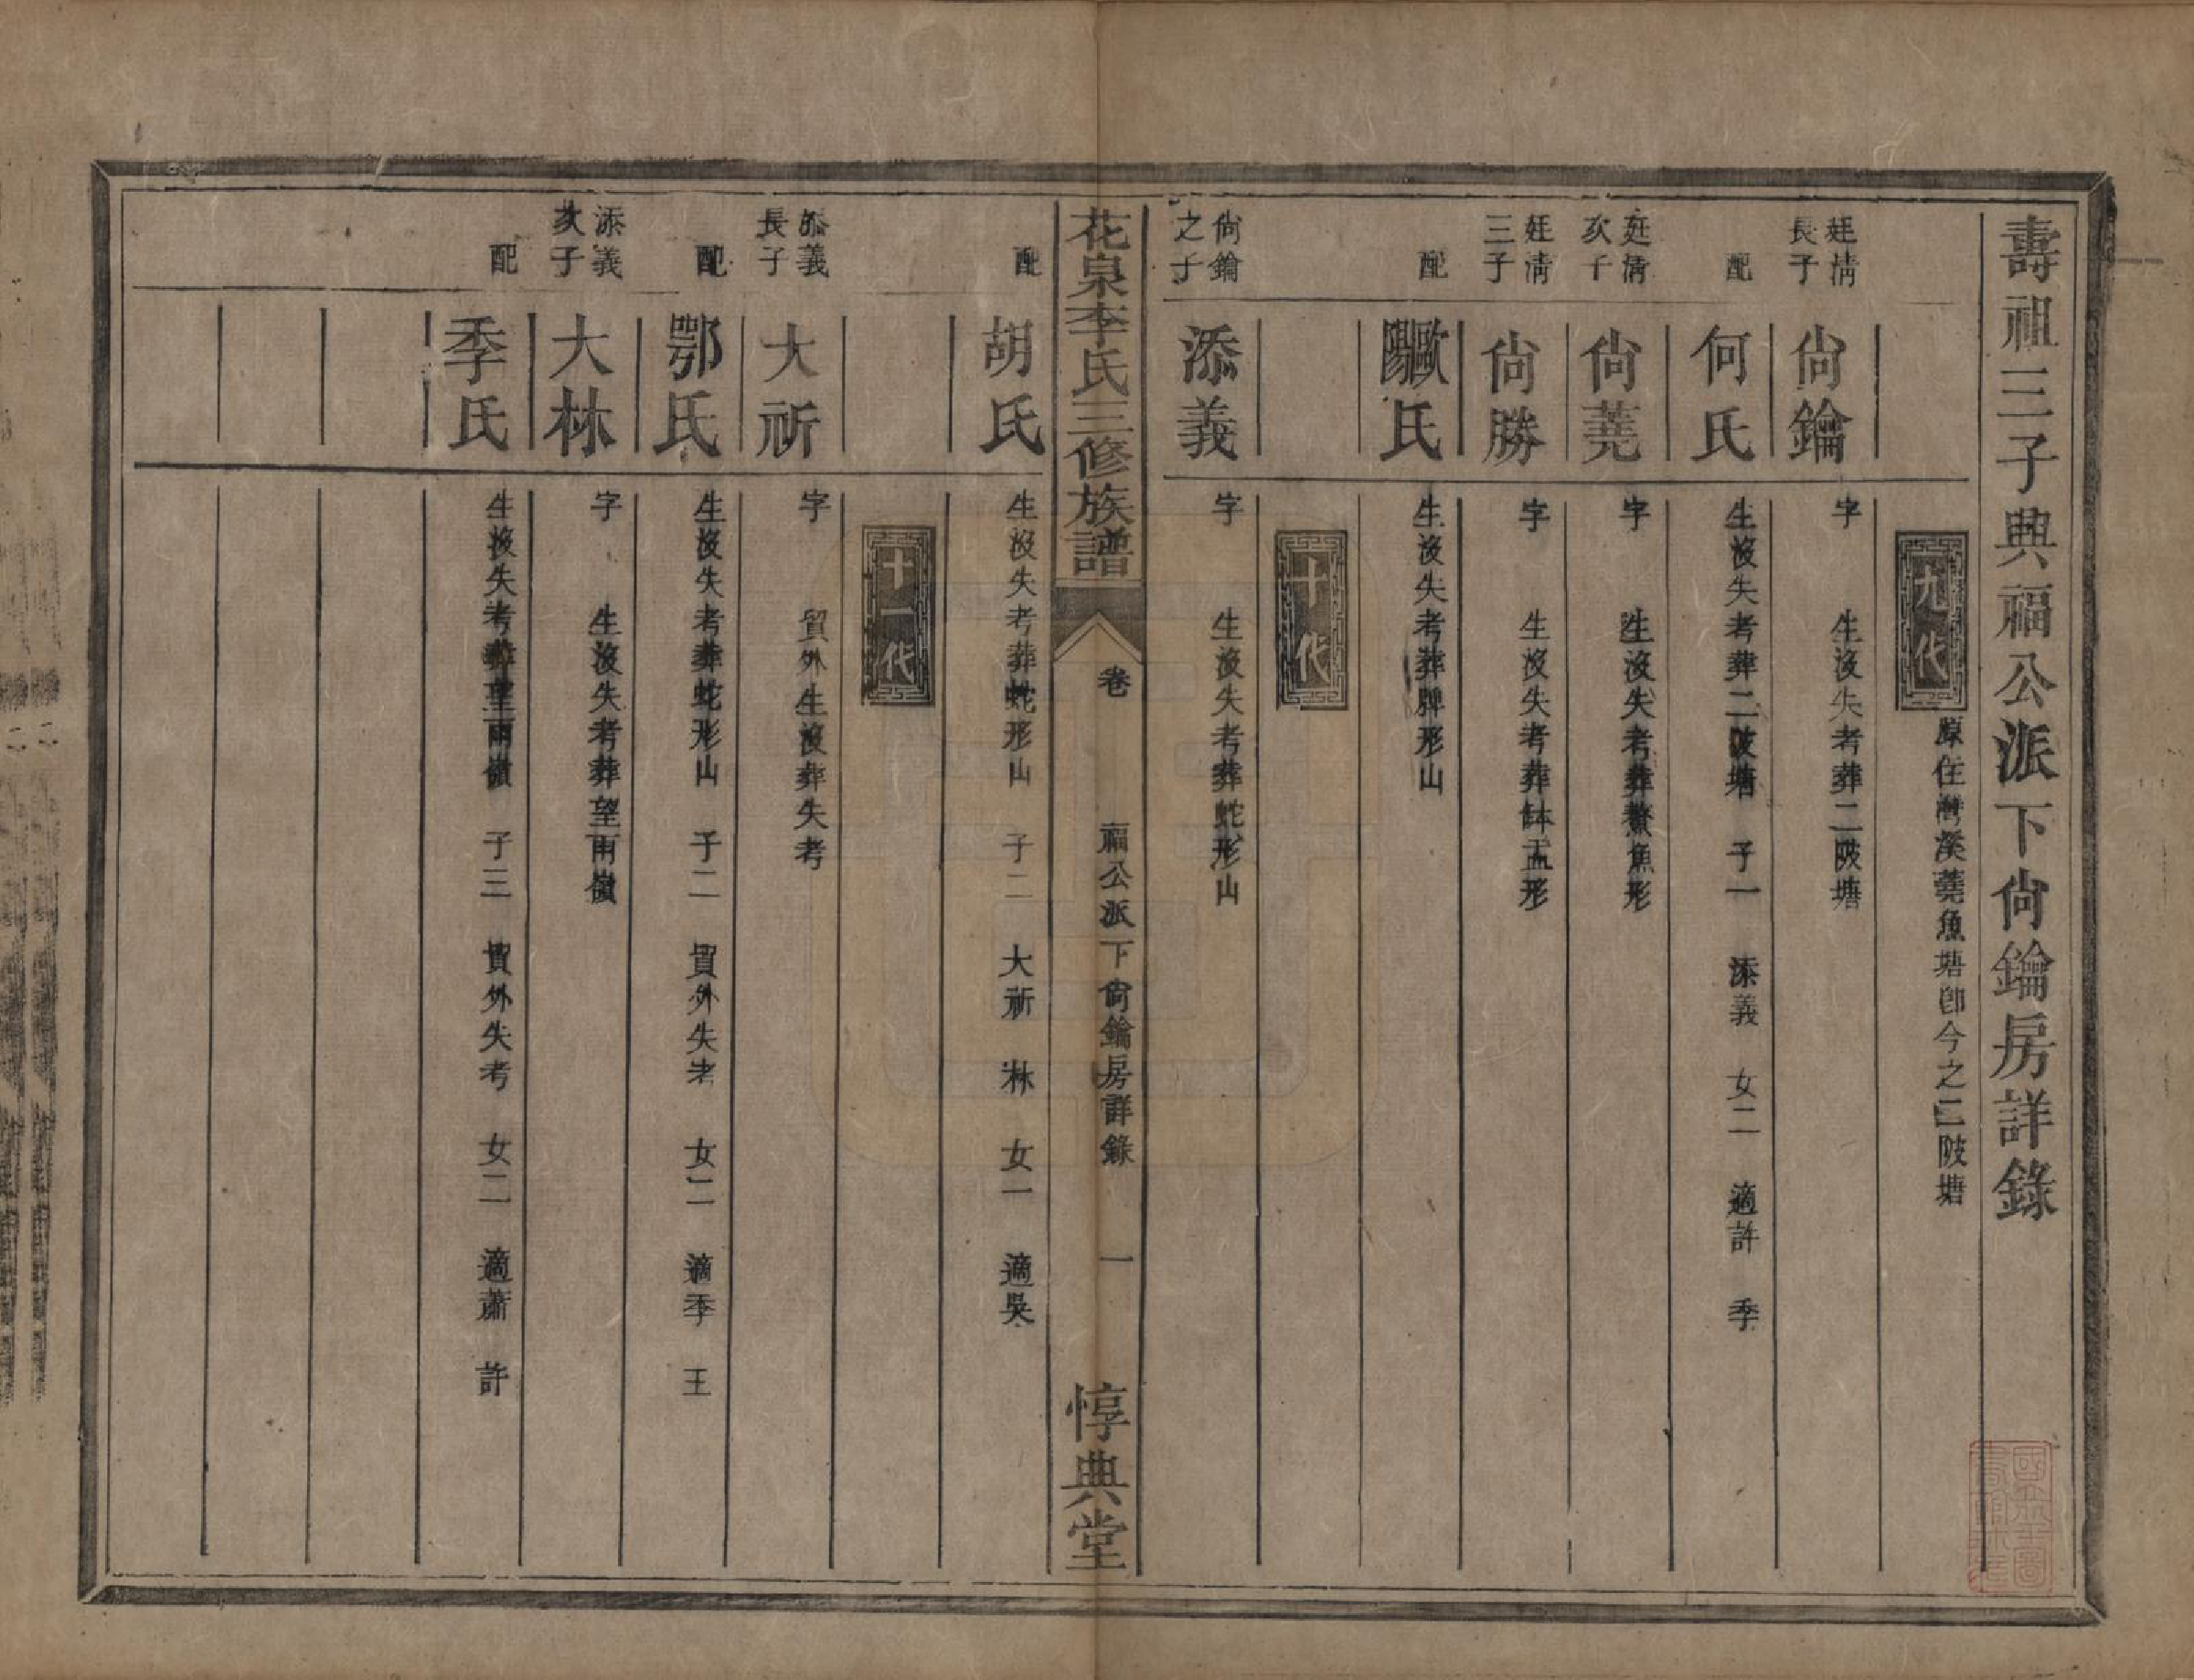 壽祖三子典福公派下尙鑰房詳錄
九代
原住灣溪蕘魚塘卽今之二陂塘
廷淸長子
尙鑰
字 生沒失考葬二陂塘
配
何氏
生沒失考葬二陂塘 子一 添義 女二 適許 季
廷淸次子
尙蕘
字 生沒失考葬鰲魚形
廷淸三子
尙勝
字 生沒失考葬鉢盂形
配
歐陽氏
生沒失考葬牌形山
十代
尙鑰之子
添義
字 生沒失考葬蛇形山
花泉李氏三修族譜
卷 福公派下尙鑰房詳錄 一
惇典堂
配
胡氏
生沒失考葬蛇形山 子二 大祈 林 女一 適吳
十一代
添義長子
大祈
字 貿外生沒葬失考
配
鄂氏
生沒失考葬蛇形山 子二 貿外失考 女二 適季 王
添義次子
大林
字 生沒失考葬望雨嶺
配
季氏
生沒失考葬望雨嶺 子三 貿外失考 女二 適蕭 許